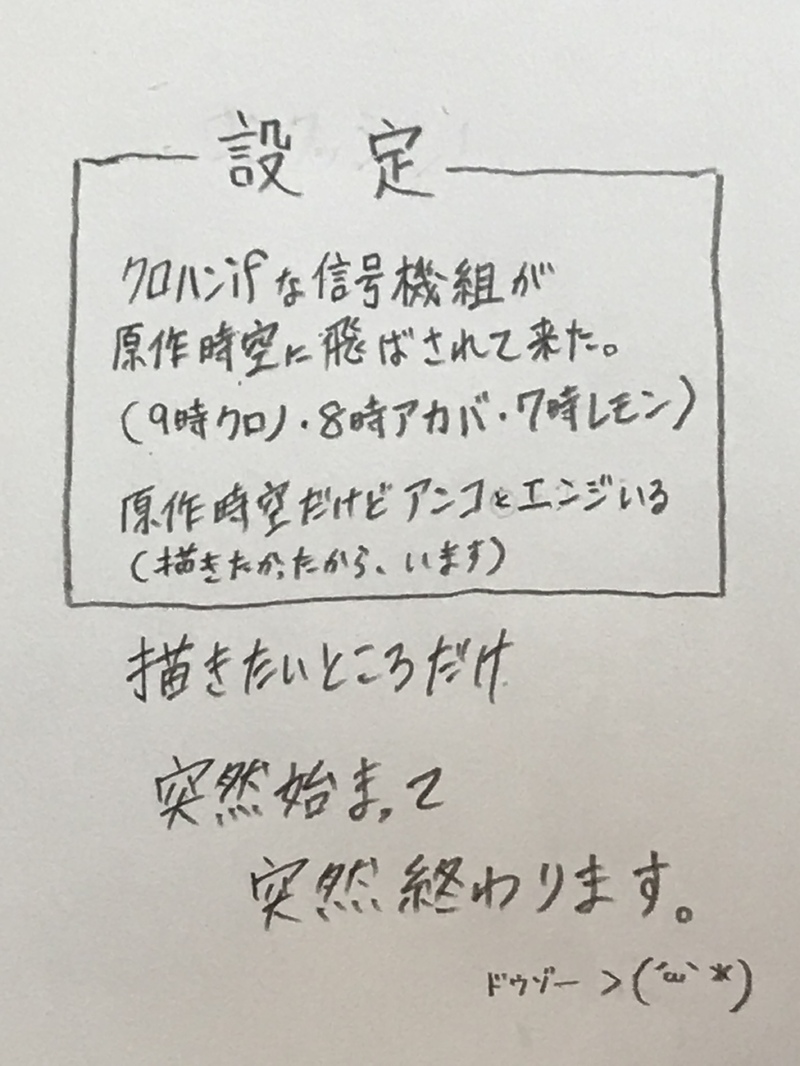 設定
クロハンifな信号機組が
原作時空に飛ばされて来た。
(9時クロノ・8時アカバ・7時レモン)
原作時空だけどアンコとエンジいる
(描きたかったから、います)
描きたいところだけ
突然始まって
突然終わります。
ドウゾー >(´ω`*)